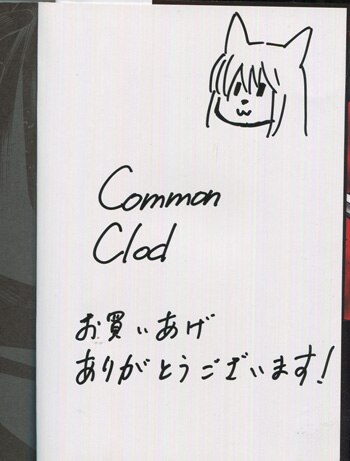 Common
Clod
お買いあげ
ありがとうございます!